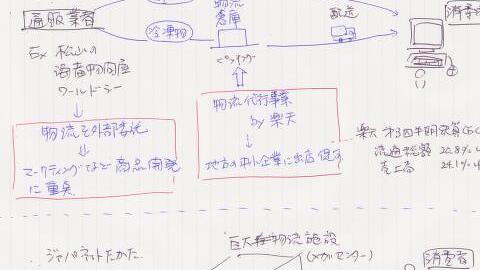 物流
倉庫
配送
消費者
高販業者
冷凍物
Ex 松山の
海産物問屋
ワールドシー
ピッキング
物流を外部委託
↓
マーケティングおよび商品開発
に重点
物流代行事業
by 楽天
↓
地方の中小企業に出店促す
楽天 才3四半期決算
流通総額 20.8%
売上高 24.1%
ジャパネットたかた
巨大物流施設
(メガセンター)
消費者